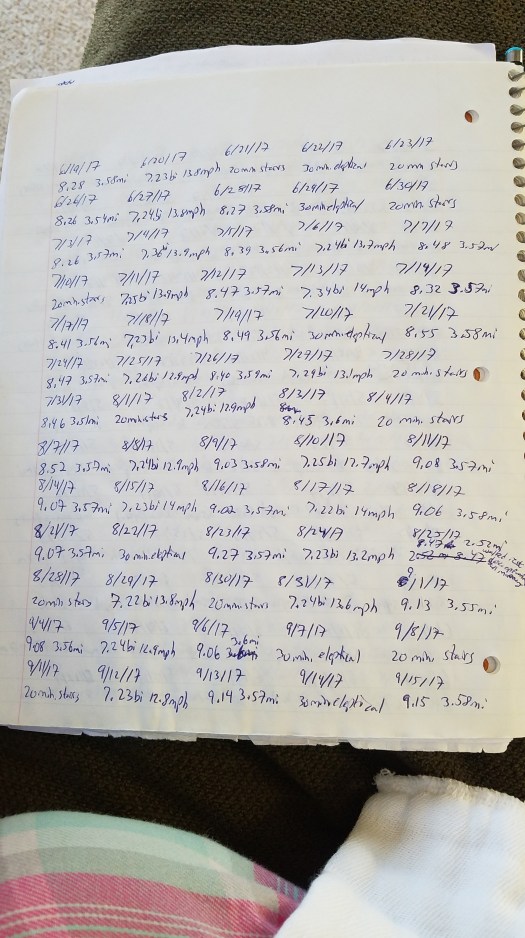 6/19/17 6/20/17 6/21/17 6/22/17 6/23/17
8.28 3.58mi 7.23bi 13.8mph 20min stairs 30min eliptical 20min stairs
6/26/17 6/27/17 6/28/17 6/29/17 6/30/17
8.26 3.54mi 7.24bi 13.8mph 8.27 3.58mi 30min eliptical 20min stairs
7/3/17 7/4/17 7/5/17 7/6/17 7/7/17
8.26 3.57mi 13.9mph 8.39 3.56mi 7.24bi 13.7mph 8.48 3.57mi
7/10/17 7/11/17 7/12/17 7/13/17 7/14/17
20min.stairs 7.25bi 13.8mph 8.47 3.57mi 7.34bi 14mph 8.32 3.57mi
7/17/17 7/18/17 7/19/17 7/20/17 7/21/17
8.41 3.56mi 7.23bi 13.4mph 8.49 3.56mi 30min.eliptical 8.55 3.58mi
7/24/17 7/25/17 7/26/17 7/27/17 7/28/17
8.47 3.57mi 7.26bi 12.9mph 8.40 3.59mi 7.24bi 20 min. stairs
7/31/17 8/1/17 8/2/17 8/3/17 8/4/17
8.46 20minstairs 7.24bi 12.9mph 8.45 3.6mi 20 min. stairs
8/7/17 8/8/17 8/9/17 8/10/17 8/11/17
8.52 3.57mi 7.24bi 12.9mph 9.03 3.58mi 7.25bi 12.7mph 9.08 3.57mi
8/14/17 8/15/17 8/16/17 8/17/17 8/18/17
9.07 3.57mi 7.23bi 14mph 9.02 3.57mi 7.22bi 14mph 9.06 3.58mi
8/21/17 8/22/17 8/23/17 8/24/17 8/25/17
9.07 3.57mi 30min.eliptical 9.27 3.57mi 7.23bi 13.2mph 8.47 2.52mi
8/28/17 8/29/17 8/30/17 8/31/17 9/1/17
20min.stairs 7.22bi 13.8mph 20min.stairs 7.24bi 13.6mph 9.13 3.55mi
9/4/17 9/5/17 9/6/17 9/7/17 9/8/17
9.08 3.56mi 7.24bi 12.9mph 9.06 3.6mi 30min. eliptical 20 min. stairs
9/11/17 9/12/17 9/13/17 9/14/17 9/15/17
20min.stairs 7.23bi 12.8mph 9.14 3.57mi 30min eliptical 9.15 3.58mi